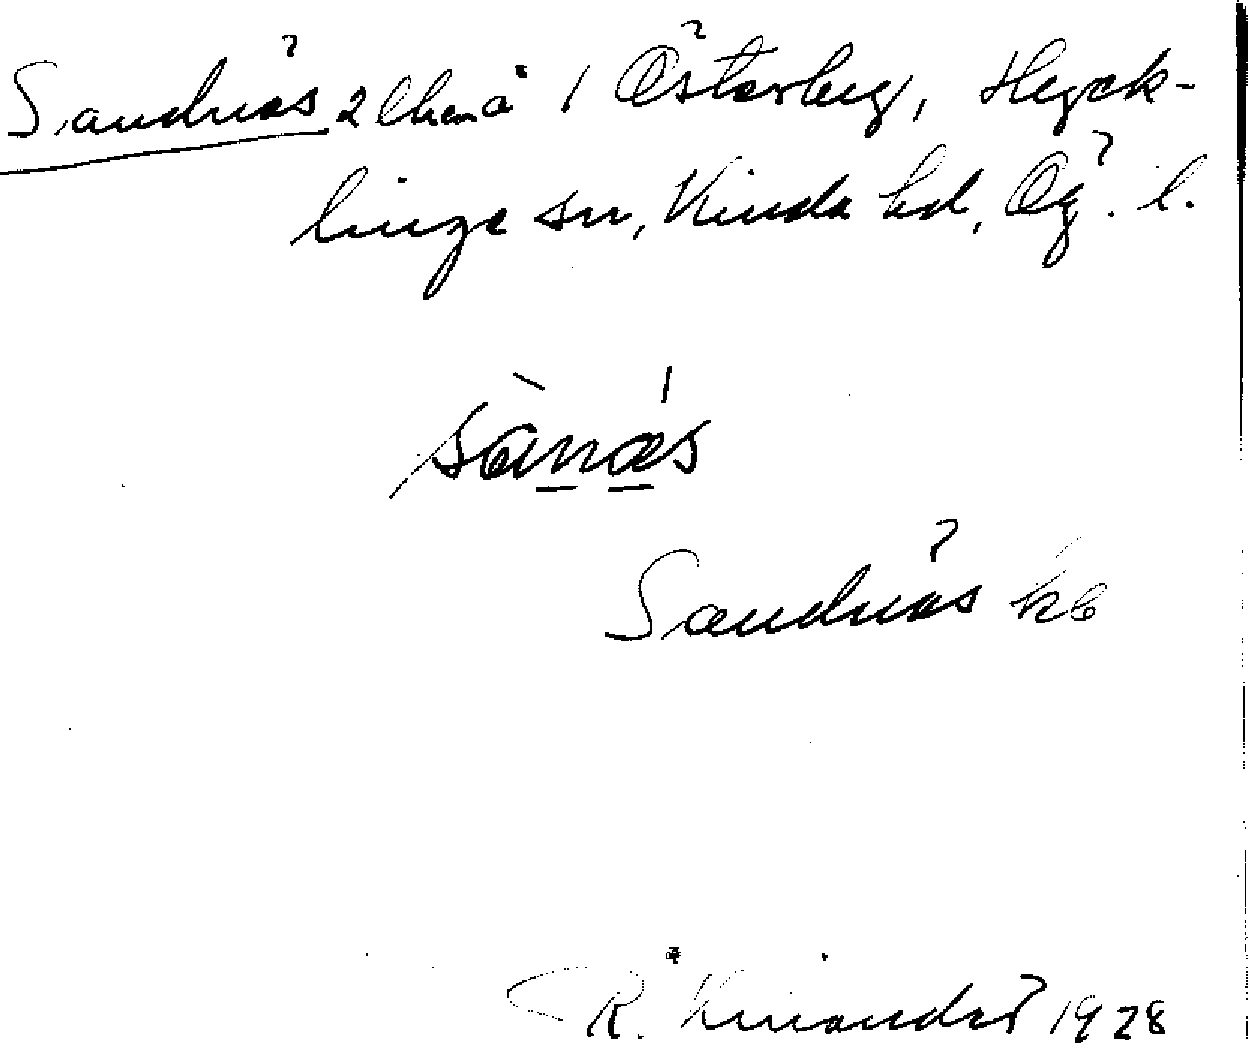 Sandnäs 2 lhe på 1 Österberg, Hyck-
linge sn, Kinda hd, Ög. l.
sànǽs
Sandnäs kb
R. Kinander 1928